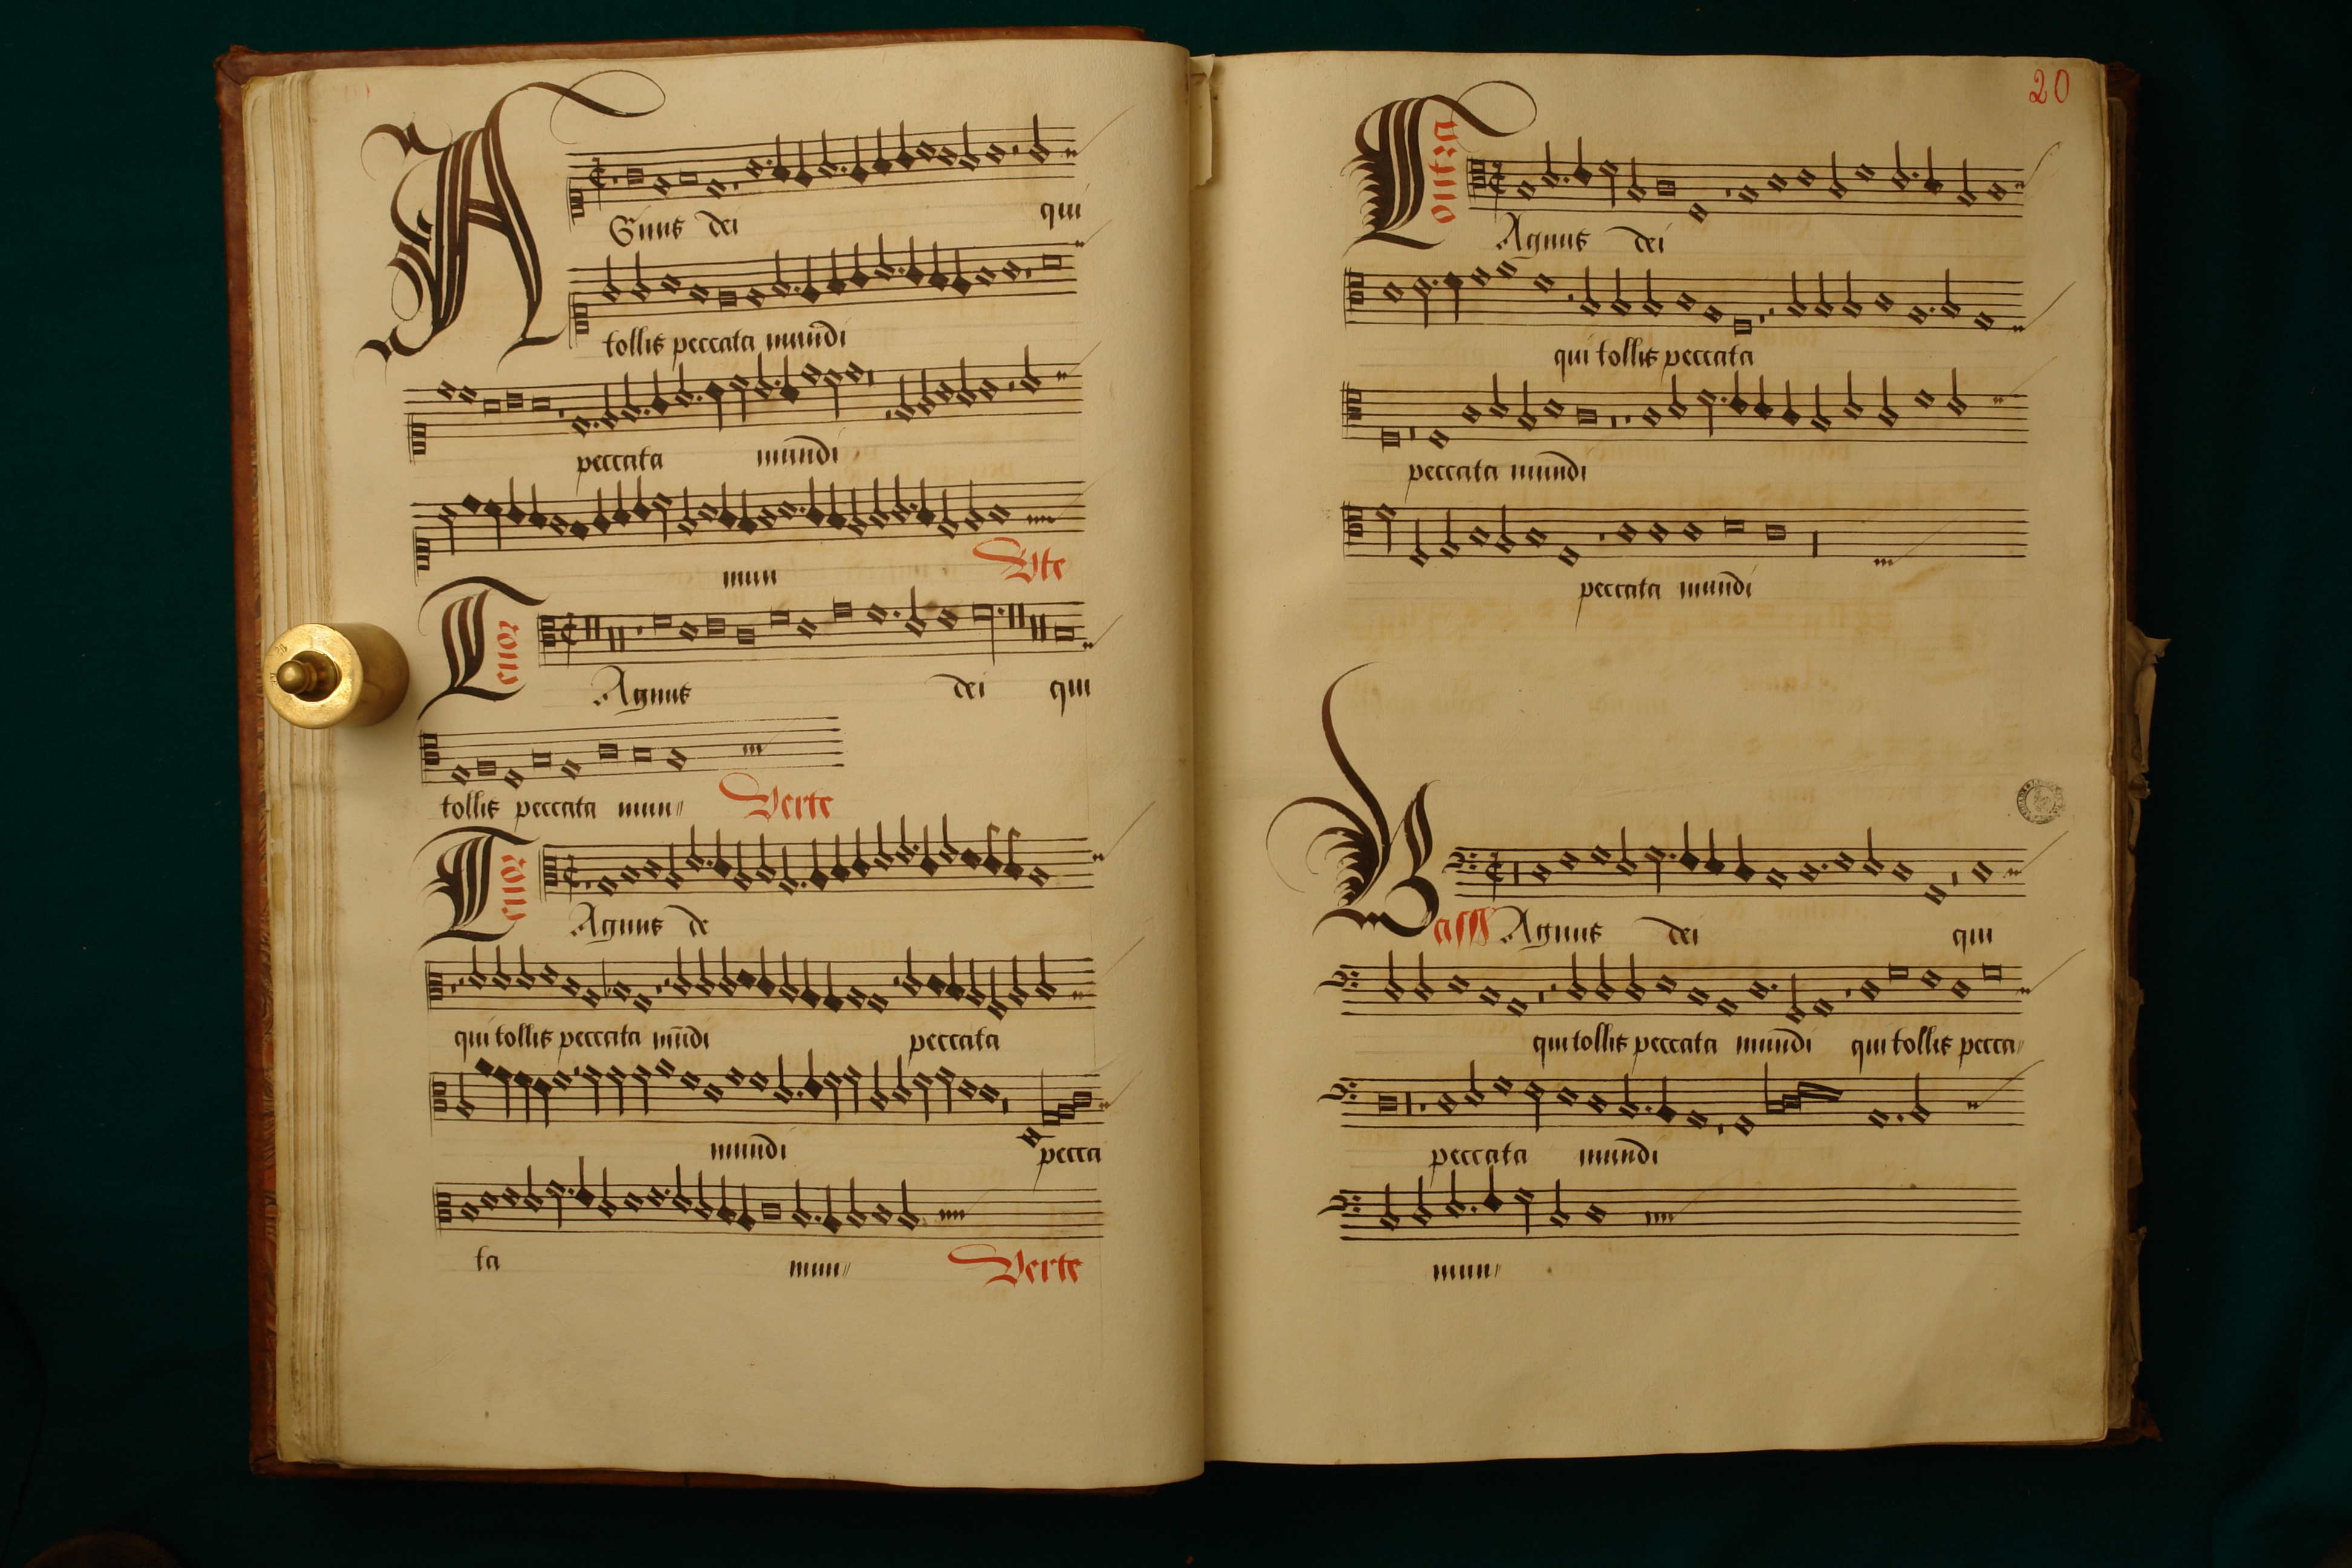 AGnus dei qui
tollis peccata mundi
peccata mundi
mun
Vte
Tenor
Agnus dei qui
tollis peccata mun〃
Verte
Tenor
Agnus de
qui tollis peccata mūdi peccata
mundi pecca
ta mun〃
Verte
20
Contra
Agnus dei
qui tollis peccata
peccata mundi
peccata mundi
Bass Agnus dei qui
qui tollis peccata mundi qui tollis pecca〃
peccata mundi
mun〃